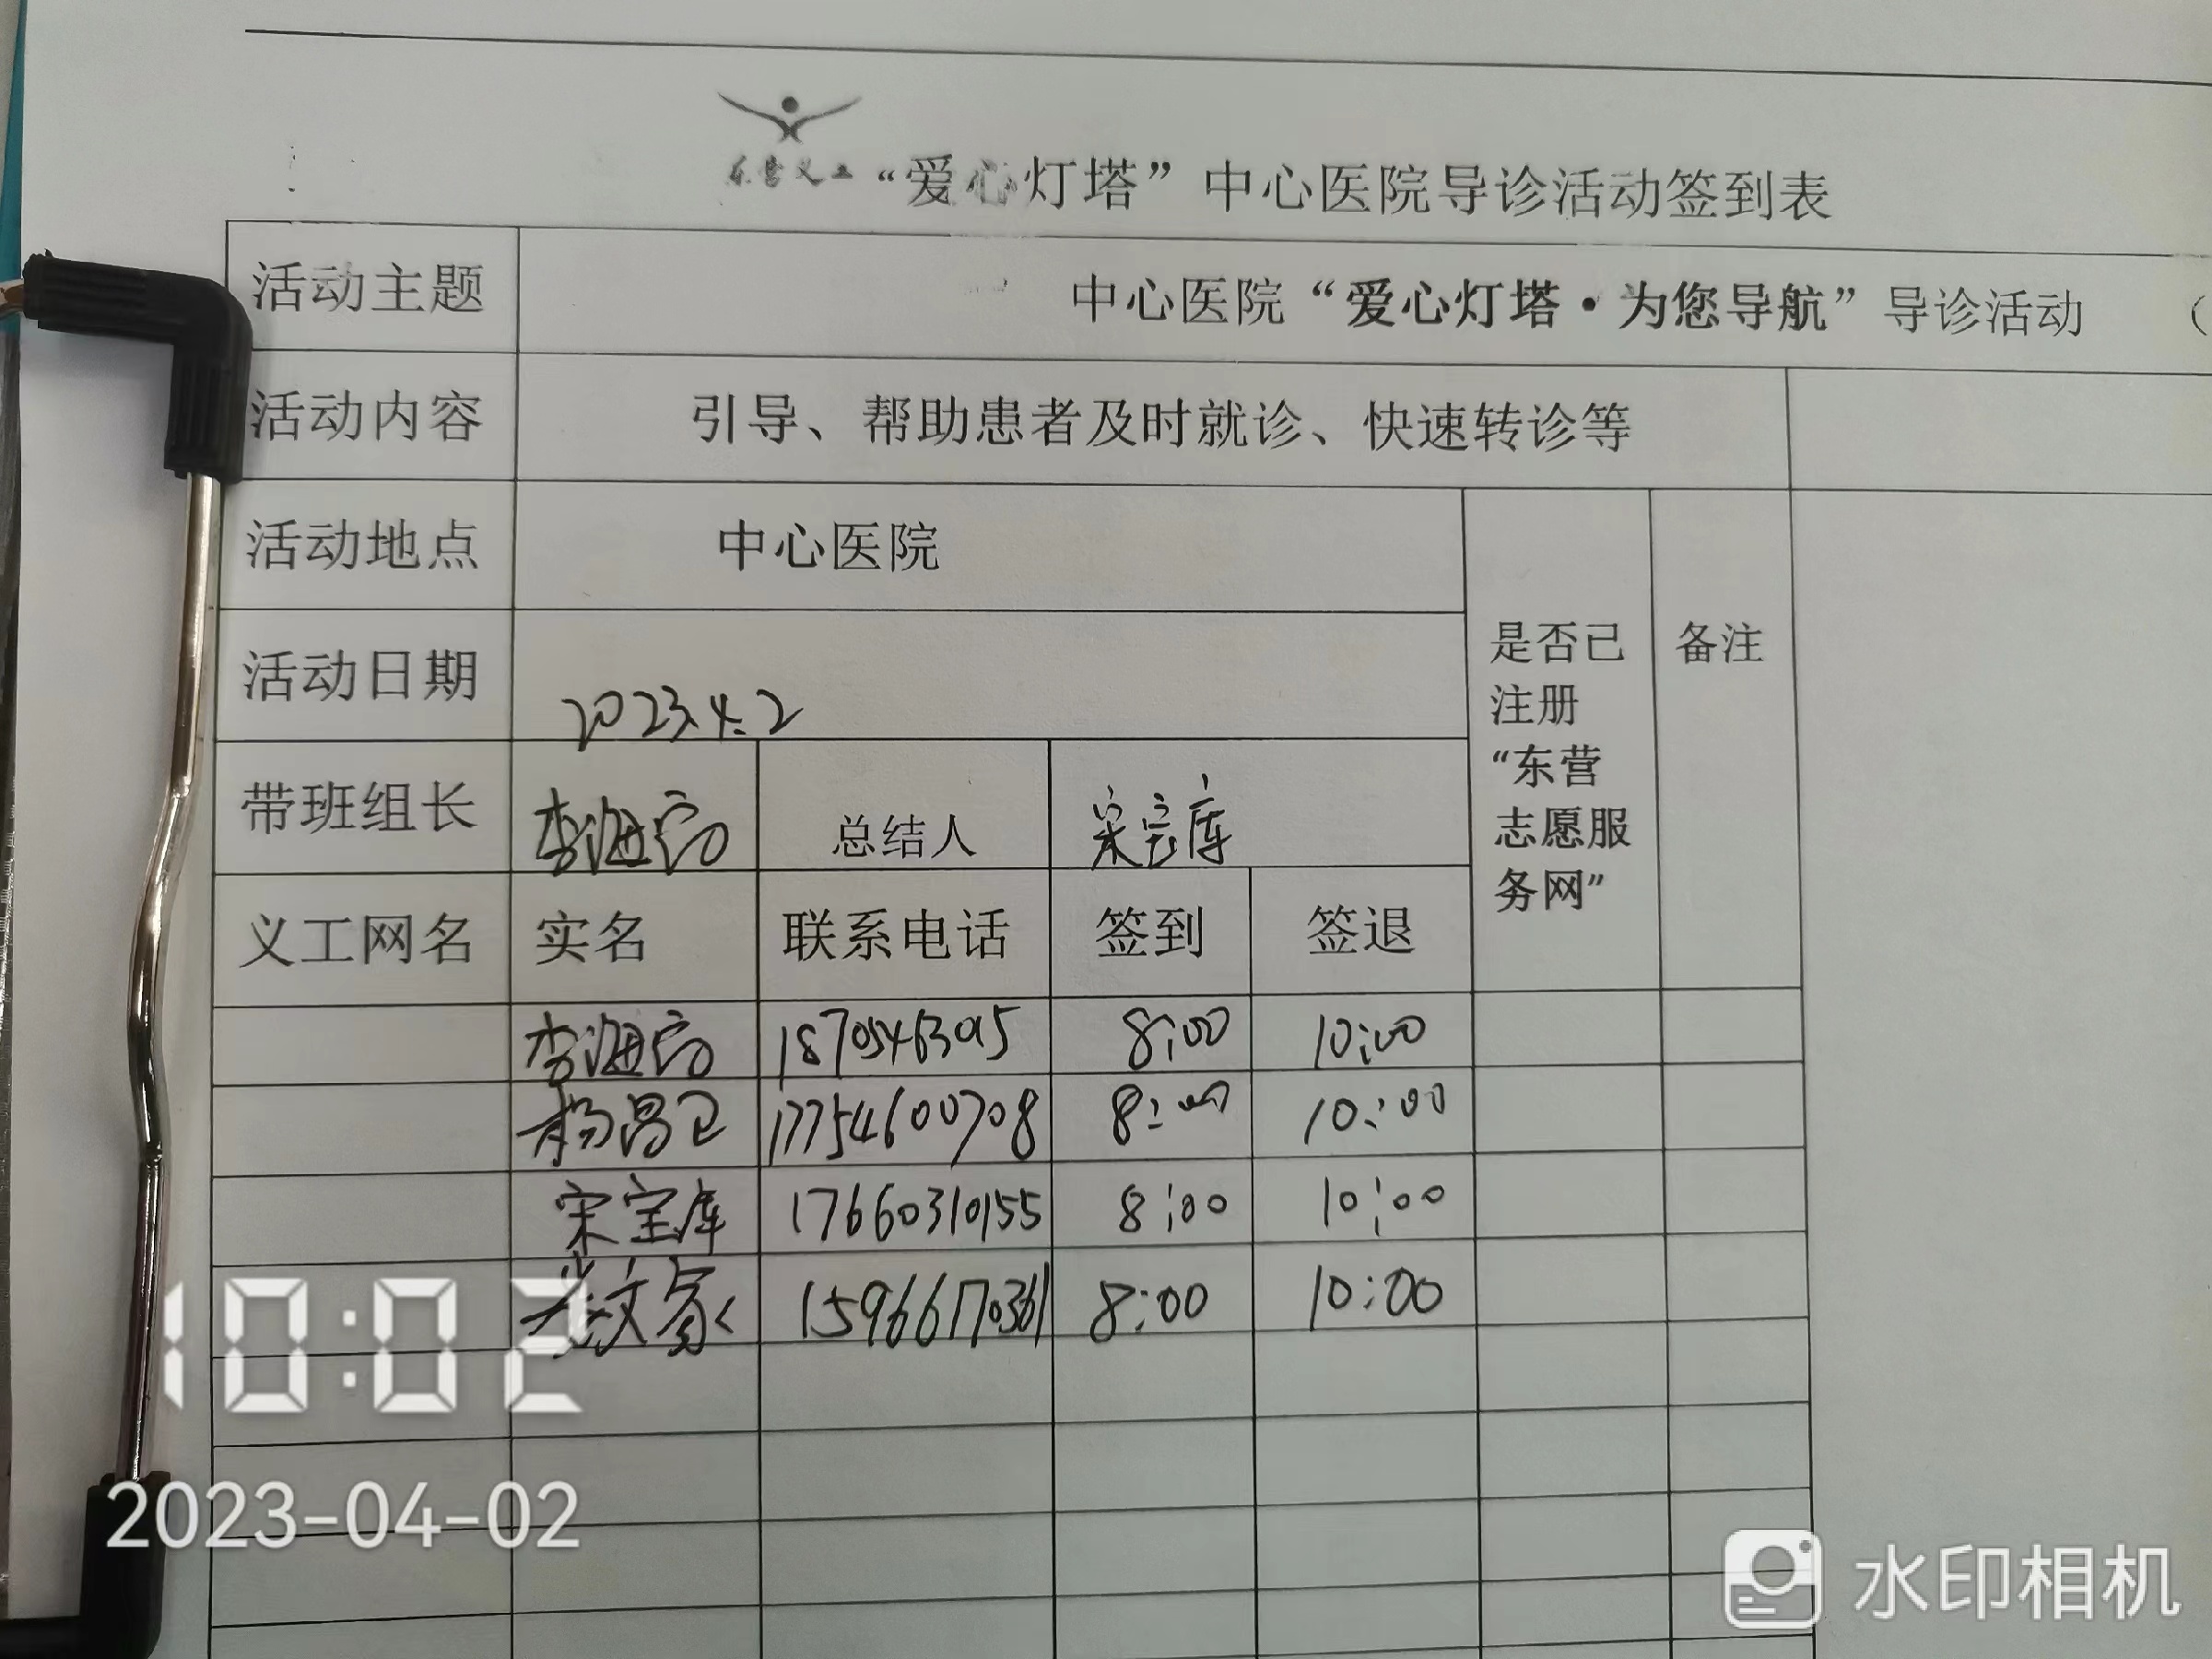 东营义工 “爱心灯塔”中心医院导诊活动签到表
活动主题 中心医院“爱心灯塔·为您导航”导诊活动 （
活动内容 引导、帮助患者及时就诊、快速转诊等
活动地点 中心医院
活动日期 2023.4.2
是否已注册“东营志愿服务网” 备注
带班组长 李海 总结人 宋宝库
义工网名 实名 联系电话 签到 签退
李海 8:00 10:00
杨昌卫 17754600708 8:00 10:00
宋宝库 17660310155 8:00 10:00
文 15966170361 8:00 10:00
10:02
2023-04-02
水印相机